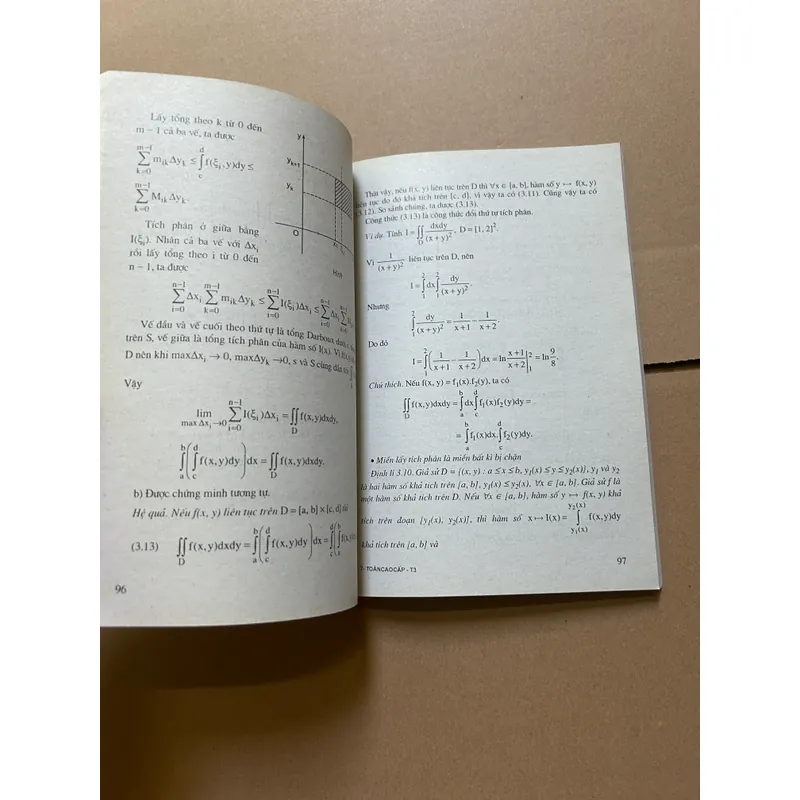 Lấy tổng theo k từ 0 đến
m – 1 cả ba vế, ta được
m–1 d
∑ m_ik Δy_k ≤ ∫ f(ξ_i, y)dy ≤
k=0 c
m–1
∑ M_ik Δy_k.
k=0
y
y_k+1
y_k
O
x_i
Hình
Tích phân ở giữa bằng
I(ξ_i). Nhân cả ba vế với Δx_i
rồi lấy tổng theo i từ 0 đến
n – 1, ta được
n–1 m–1 n–1 n–1 m–1
∑ Δx_i ∑ m_ik Δy_k ≤ ∑ I(ξ_i)Δx_i ≤ ∑ Δx_i ∑
i=0 k=0 i=0 i=0
Vế đầu và vế cuối theo thứ tự là tổng Darboux dưới s,
trên S, vế giữa là tổng tích phân của hàm số I(x). Vì
D nên khi maxΔx_i → 0, maxΔy_k →0, s và S cùng dần tới
Vậy
n–1
lim ∑ I(ξ_i)Δx_i = ∫∫ f(x,y)dxdy,
max Δx_i→0 i=0 D
b d
∫ ( ∫ f(x,y)dy ) dx = ∫∫ f(x,y)dxdy.
a c D
b) Được chứng minh tương tự.
Hệ quả. Nếu f(x, y) liên tục trên D = [a, b] × [c, d] thì
b d d b
(3.13) ∫∫ f(x,y)dxdy = ∫ ( ∫ f(x,y)dy ) dx = ∫ ( ∫ f(x,
D a c c a
96
Thật vậy, nếu f(x, y) liên tục trên D thì ∀x ∈ [a, b], hàm số y ↦ f(x, y)
liên tục do đó khả tích trên [c, d], vì vậy ta có (3.11). Cũng vậy ta có
(3.12). So sánh chúng, ta được (3.13).
Công thức (3.13) là công thức đổi thứ tự tích phân.
Ví dụ. Tính I = ∫∫_D dxdy/(x + y)², D = [1, 2]².
Vì 1/(x + y)² liên tục trên D, nên
2 2
I = ∫ dx ∫ dy/(x + y)².
1 1
Nhưng
2
∫ dy/(x + y)² = 1/(x + 1) – 1/(x + 2).
1
Do đó
2
I = ∫ ( 1/(x + 1) – 1/(x + 2) ) dx = ln (x + 1)/(x + 2) |₁² = ln 9/8.
1
Chú thích. Nếu f(x, y) = f₁(x).f₂(y), ta có
b d
∫∫ f(x,y)dxdy = ∫ dx ∫ f₁(x)f₂(y)dy =
D a c
b d
= ∫ f₁(x)dx. ∫ f₂(y)dy.
a c
• Miền lấy tích phân là miền bất kì bị chặn
Định lí 3.10. Giả sử D = {(x, y) : a ≤ x ≤ b, y₁(x) ≤ y ≤ y₂(x)}, y₁ và y₂
là hai hàm số khả tích trên [a, b], y₁(x) ≤ y₂(x), ∀x ∈ [a, b]. Giả sử f là
một hàm số khả tích trên D. Nếu ∀x ∈ [a, b], hàm số y ↦ f(x, y) khả
y₂(x)
tích trên đoạn [y₁(x), y₂(x)], thì hàm số x ↦ I(x) = ∫ f(x, y)dy
y₁(x)
khả tích trên [a, b] và
7- TOÁNCAOCẤP - T3
97